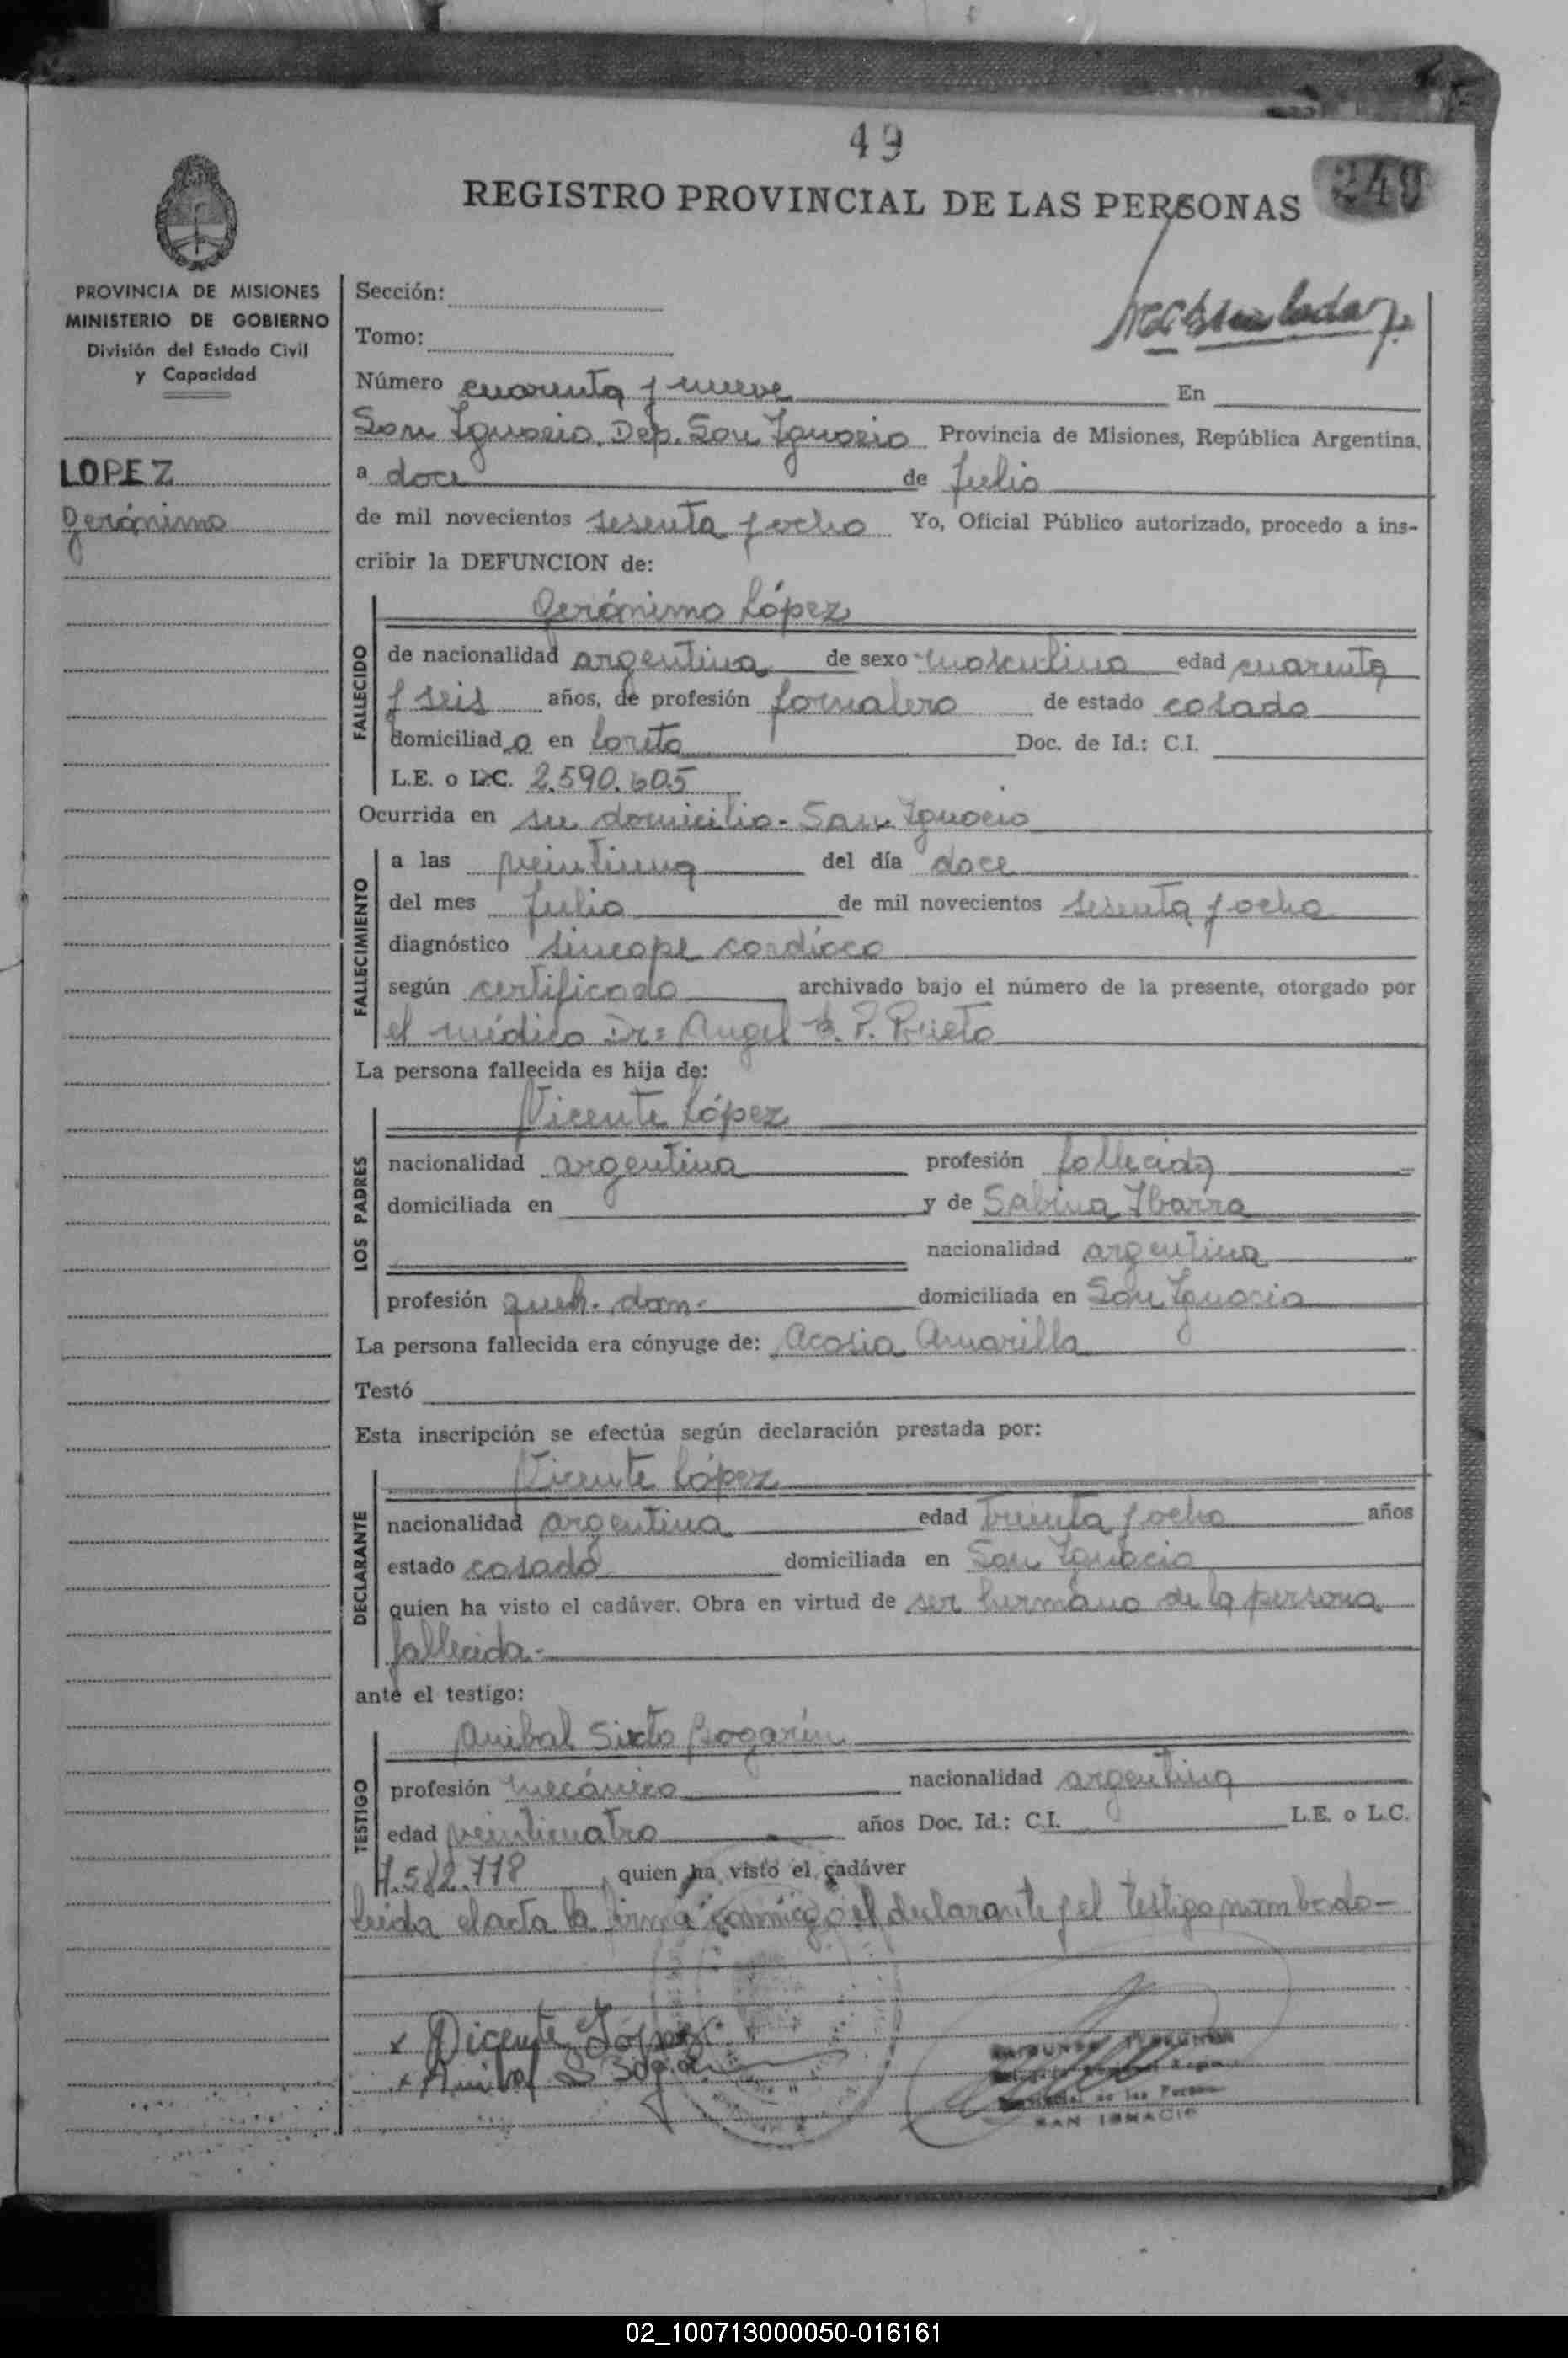 49
REGISTRO PROVINCIAL DE LAS PERSONAS
249
PROVINCIA DE MISIONES
MINISTERIO DE GOBIERNO
División del Estado Civil
y Capacidad
LOPEZ
Gerónimo
Sección:
Tomo:
Número cuarenta y nueve En
San Ignacio. Dep. San Ignacio Provincia de Misiones, República Argentina,
a doce de Julio
de mil novecientos sesenta y ocho Yo, Oficial Público autorizado, procedo a ins-
cribir la DEFUNCION de:
FALLECIDO
Gerónimo López
de nacionalidad argentina de sexo masculino edad cuarenta
y seis años, de profesión jornalero de estado casado
domiciliado en Loreto Doc. de Id.: C.I.
L.E. o L.C. 2.590.605
Ocurrida en su domicilio - San Ignacio
FALLECIMIENTO
a las veintiuna del día doce
del mes Julio de mil novecientos sesenta y ocho
diagnóstico síncope cardíaco
según certificado archivado bajo el número de la presente, otorgado por
el médico Dr: Angel B. P. Prieto
La persona fallecida es hija de:
LOS PADRES
Vicente López
nacionalidad argentina profesión fallecida
domiciliada en y de Sabina Ibarra
nacionalidad argentina
profesión queh. dom. domiciliada en San Ignacio
La persona fallecida era cónyuge de: Acasia Amarilla
Testó
Esta inscripción se efectúa según declaración prestada por:
DECLARANTE
Vicente López
nacionalidad argentina edad treinta y ocho años
estado casado domiciliada en San Ignacio
quien ha visto el cadáver. Obra en virtud de ser hermano de la persona
fallecida.-
ante el testigo:
TESTIGO
Anibal Sixto Bogarín
profesión mecánico nacionalidad argentina
edad veinticuatro años Doc. Id.: C.I. L.E. o L.C.
7.582.778, quien ha visto el cadáver
Leida el acta la firma conmigo el declarante y el testigo nombrado-
x Vicente López
x Anibal S Bogarin
SAN IGNACIO
02_100713000050-016161